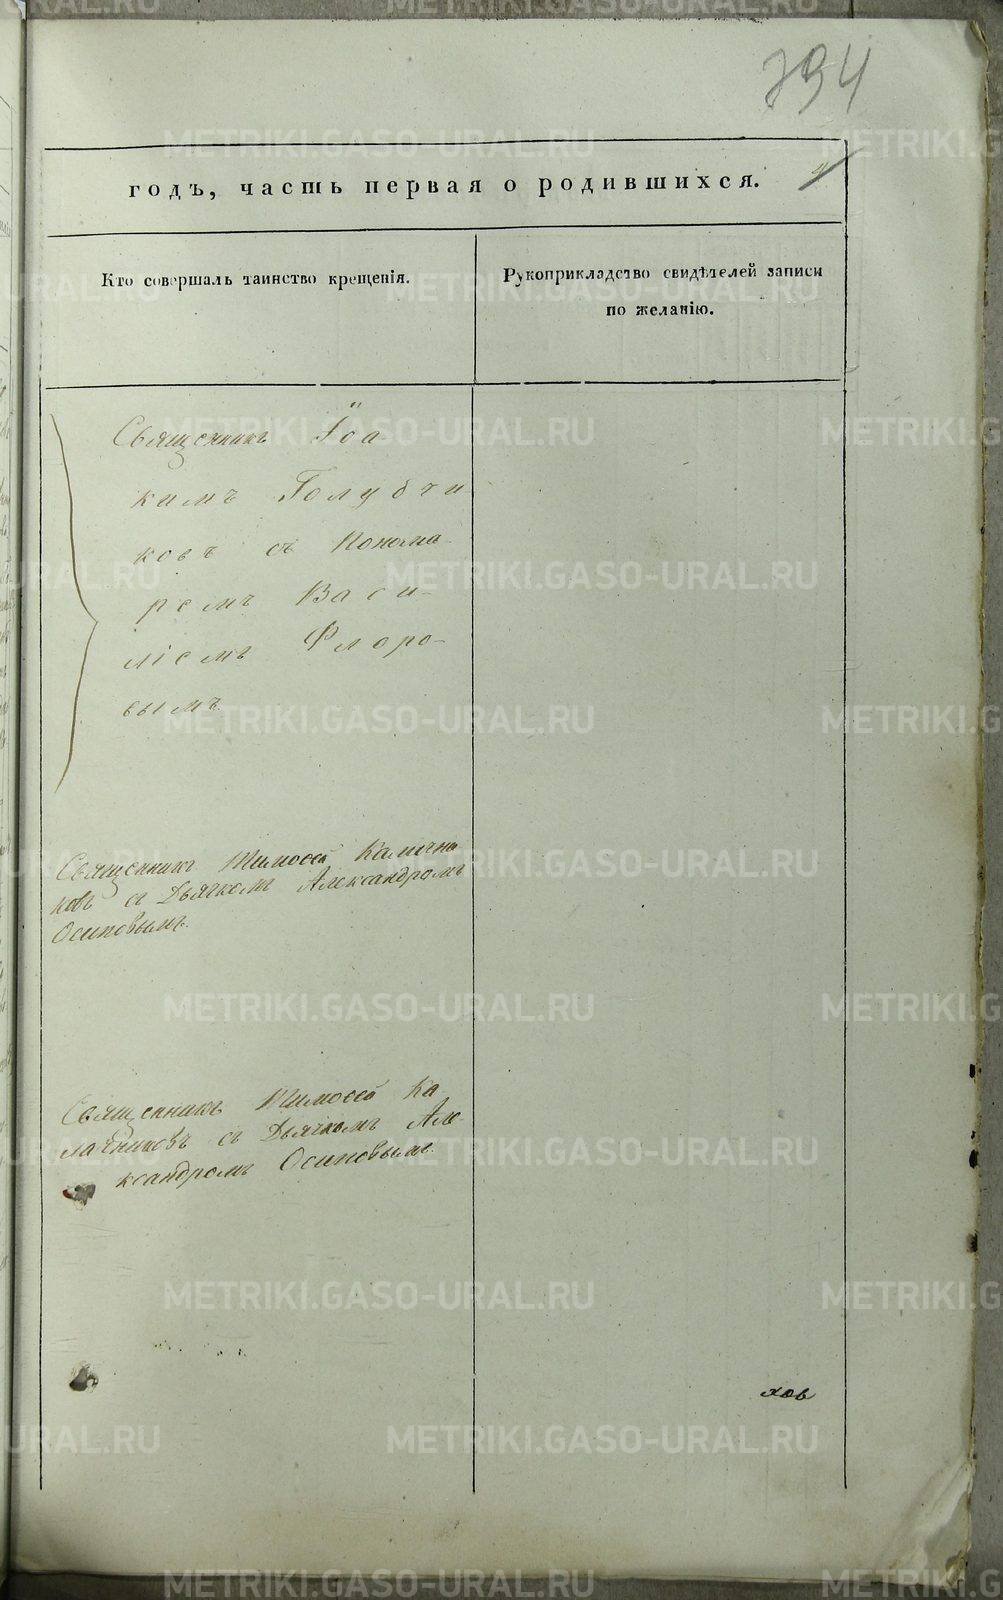 794
годъ, часть первая о родившихся.
Кто совершалъ таинство крещенія.
Рукоприкладство свидѣтелей записи
по желанію.
Священникъ Іоа
кимъ Голубчи
ковъ съ Понома-
ремъ Васи-
ліемъ Флоро-
вымъ
Священникъ Тимоѳей Калачни
ковъ съ Дьячкомъ Александромъ
Осиповымъ.
Священникъ Тимоѳей Ка
лачниковъ съ Дьячкомъ Але-
ксандромъ Осиповымъ.
ховъ
METRIKI.GASO-URAL.RU